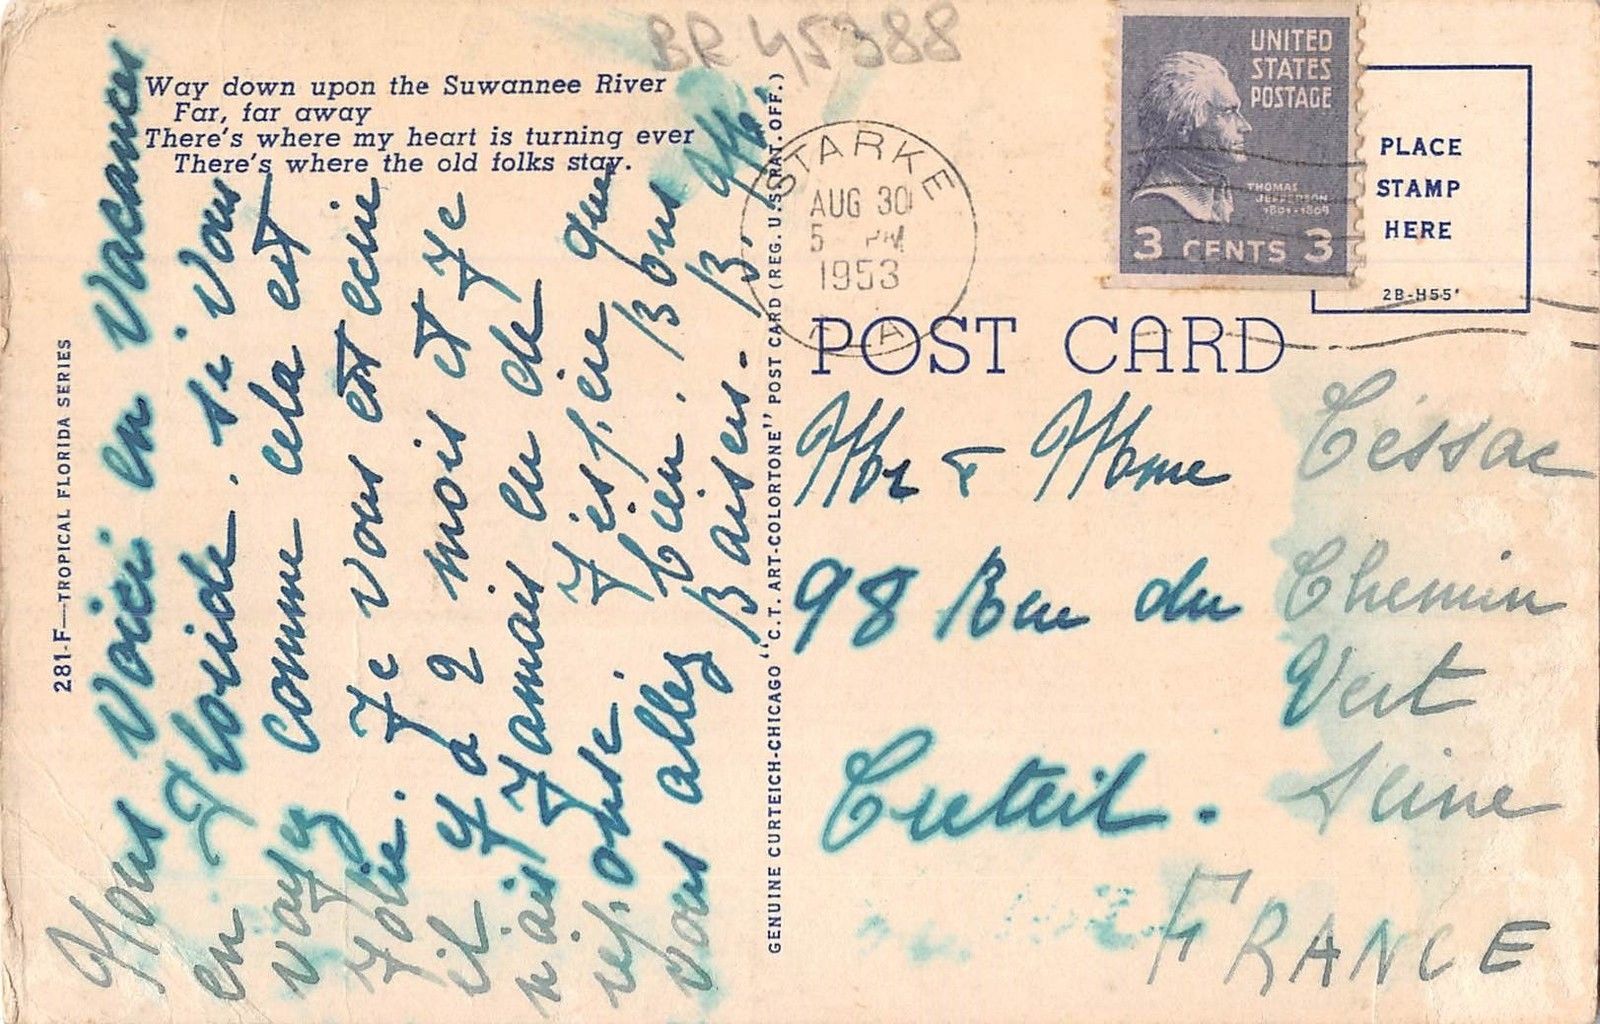 BR 45388
Way down upon the Suwannee River
Far, far away
There's where my heart is turning ever
There's where the old folks stay.
281-F—TROPICAL FLORIDA SERIES
Nous voici en vacances
en Floride. si vous
voyez comme cela est
Jolie. Je vous est ecrie
il y a 2 mois et Je
n'ais Jamais eu de
reponse. J'espère que
vous allez bien. Bons
Baisers. B.
GENUINE CURTEICH-CHICAGO "C.T. ART-COLORTONE" POST CARD (REG. U.S. PAT. OFF.)
STARKE
AUG 30
5 PM
1953
UNITED
STATES
POSTAGE
THOMAS
JEFFERSON
1801-1809
3 CENTS 3
PLACE
STAMP
HERE
2B-H55'
POST CARD
Mr & Mme Cessac
98 Rue du Chemin
Vert
Creteil. Seine
FRANCE